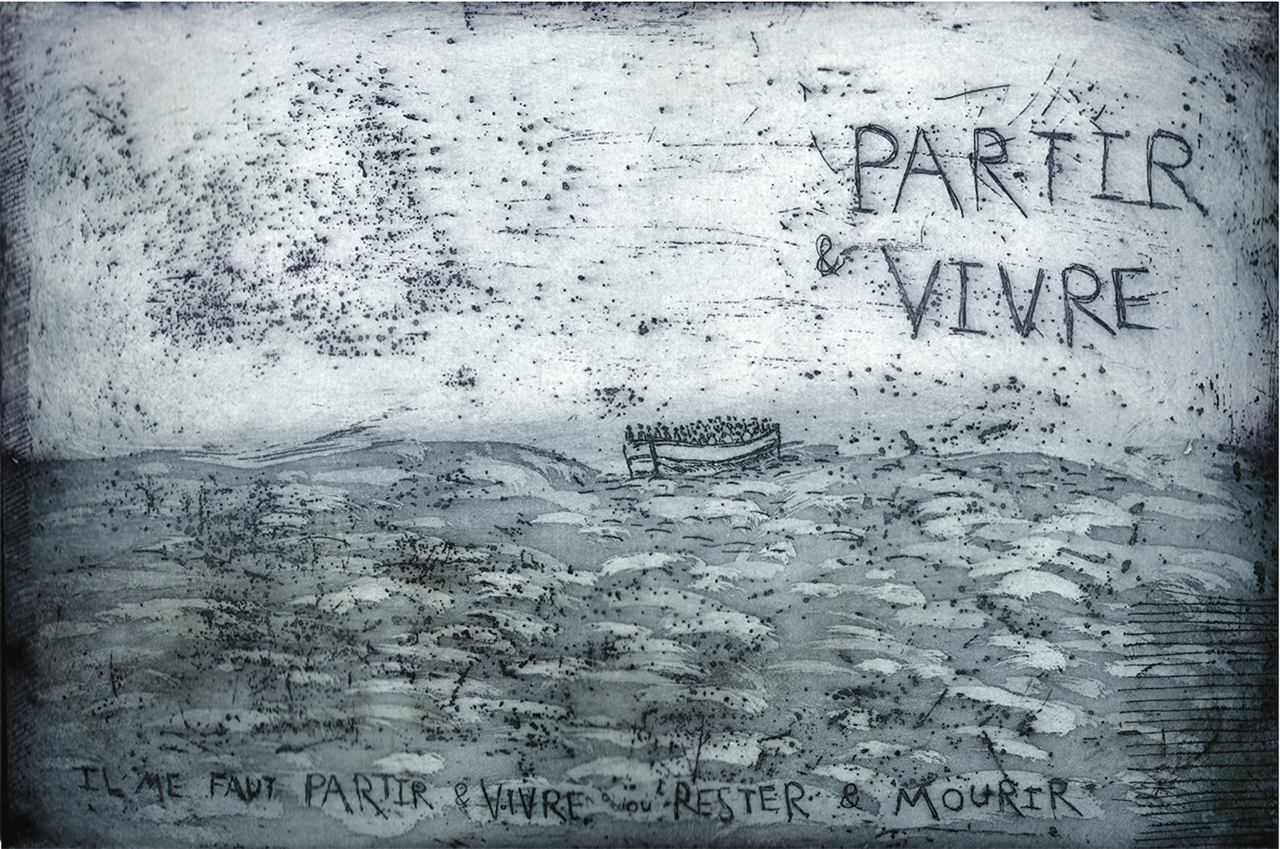 PARTIR
& VIVRE
IL ME FAUT PARTIR & VIVRE ou RESTER & MOURIR